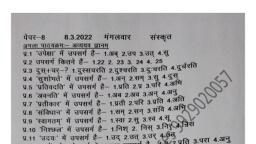 पेपर-8 8.3.2022 मंगलवार संस्कृत
प्र.1 'उपेक्षा' में उपसर्ग है- 1.अव् 2.उप 3.उत् 4.सु
प्र.2 उपसर्ग कितने है- 1.22 2. 23 3. 24 4. 25
प्र.3 दुस्+चर्-? 1.दुस्सचरति 2.दुश्चरति 3.दुःचरति 4.दुर्चरति
प्र.4 'सुशोभते' में उपसर्ग है- 1.अनु 2.सम् 3.सु 4.दुस्
प्र.5 'प्रतिवदति' में उपसर्ग है- 1.प्रति 2.प्र 3.परि 4.अभि
प्र.6 'अवनति' में उपसर्ग है- 1.अव 2.अ 3.अनु 4.अप
प्र.7 'प्रतीकार' में उपसर्ग है- 1.प्रती 2.परि 3.प्रति 4.अधि
प्र.8 'संविधान' में उपसर्ग है- 1.सम् 2.सन् 3.अभि 4.परि
प्र.9 'स्वागतम्' में उपसर्ग है- 1.स्वा 2.सु 3.स्व 4.स्
प्र.10 'निश्छल' में उपसर्ग है- 1.निश् 2. निस् 3.निर्
प्र.11 'उदयः' में उपसर्ग है- 1.उद् 2.उत् 3.उप